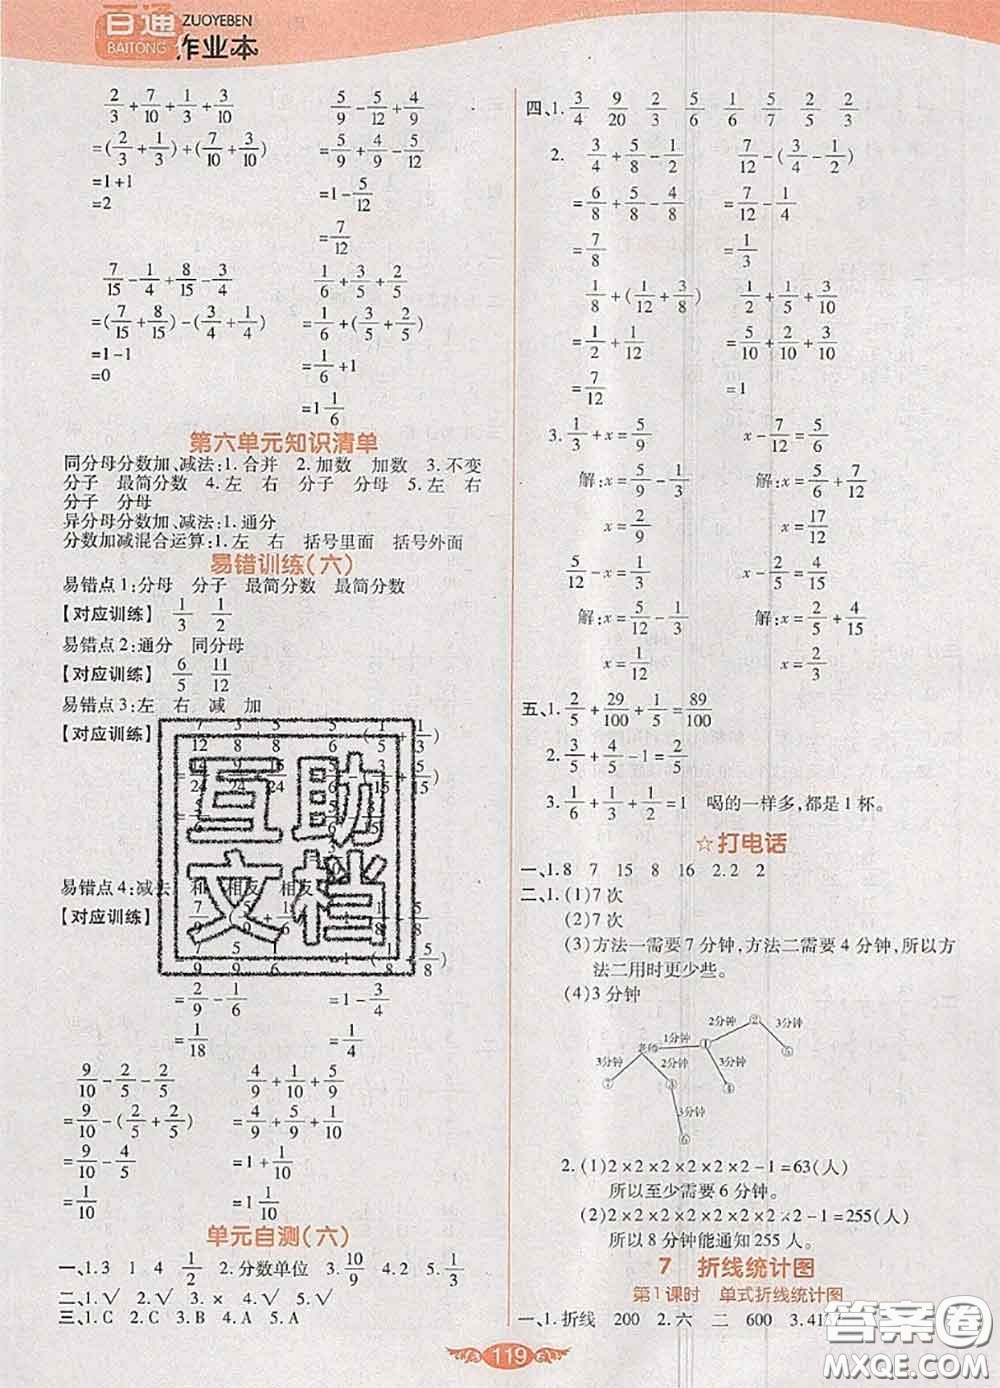 百通 ZUOYEBEN
BAITONG 作业本
2/3+7/10+1/3+3/10
=(2/3+1/3)+(7/10+3/10)
=1+1
=2
5/9-5/12+4/9
=5/9+4/9-5/12
=1-5/12
=7/12
7/15-1/4+8/15-3/4
=(7/15+8/15)-(3/4+1/4)
=1-1
=0
1/6+3/5+2/5
=1/6+(3/5+2/5)
=1/6+1
=1 1/6
第六单元知识清单
同分母分数加、减法:1.合并 2.加数 加数 3.不变
分子 最简分数 4.左 右 分子 分母 5.左 右
分子 分母
异分母分数加、减法:1.通分
分数加减混合运算:1.左 右 括号里面 括号外面
易错训练(六)
易错点1:分母 分子 最简分数 最简分数
【对应训练】 1/3 1/2
易错点2:通分 同分母
【对应训练】 6/5 11/12
易错点3:左 右 减 加
【对应训练】
易错点4:减法 相反 相反
【对应训练】
=2/9-1/6
=1/18
=1-3/4
=1/4
9/10-2/5-2/5
=9/10-(2/5+2/5)
=9/10-4/5
=1/10
4/9+1/10+5/9
=4/9+5/9+1/10
=1+1/10
=1 1/10
单元自测(六)
一、1.3 1 4 1/2 2.分数单位 3.10/9 4.2 5.1/3
二、1.√ 2.√ 3.× 4.√ 5.√
三、1.C 2.B 3.C 4.A 5.A
四、1.3/4 9/20 2/3 5/6 1/6 5/7 2/5 2/3
2. 3/4+5/8-1/2
=6/8+5/8-4/8
=7/8
7/12-(3/4-1/2)
=7/12-1/4
=1/3
1/8+(1/12+3/8)
=1/2+1/12
=7/12
1/2+1/5+3/10
=5/10+2/10+3/10
=1
3.1/3+x=5/9
解:x=5/9-1/3
x=2/9
x-7/12=5/6
解:x=5/6+7/12
x=17/12
5/12-x=1/3
解:x=5/12-1/3
x=1/12
x-2/5=4/15
解:x=2/5+4/15
x=2/3
五、1.2/5+29/100+1/5=89/100
2.3/5+4/5-1=2/5
3.1/6+1/3+1/2=1 喝的一样多,都是1杯。
☆打电话
一、1.8 7 15 8 16 2.2 2
二、1.(1)7次
(2)7次
(3)方法一需要7分钟,方法二需要4分钟,所以方
法二用时更少些。
(4)3分钟
2分钟 ② 3分钟 ⑤
老师 1分钟 ①
3分钟 2分钟 3分钟
⑦ ③ ④
3分钟
⑥
2.(1)2×2×2×2×2×2-1=63(人)
所以至少需要6分钟。
(2)2×2×2×2×2×2×2×2-1=255(人)
所以8分钟能通知255人。
7 折线统计图
第1课时 单式折线统计图
一、1.折线 200 2.六 二 600 3.41
119
互助
文档
答案圈
MXQE.COM